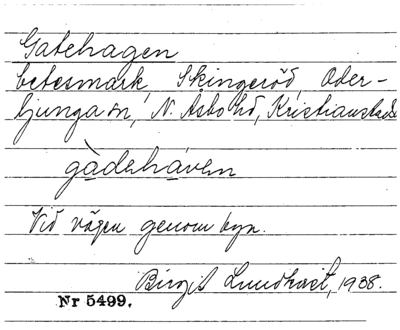 Gatehagen
betesmark, Skingeröd, Oder-
ljunga sn, N. Åsbo hd, Kristianstads
gàdehàven
Vid vägen genom byn.
Birgit Lundkvist, 1938.
Nr 5499.